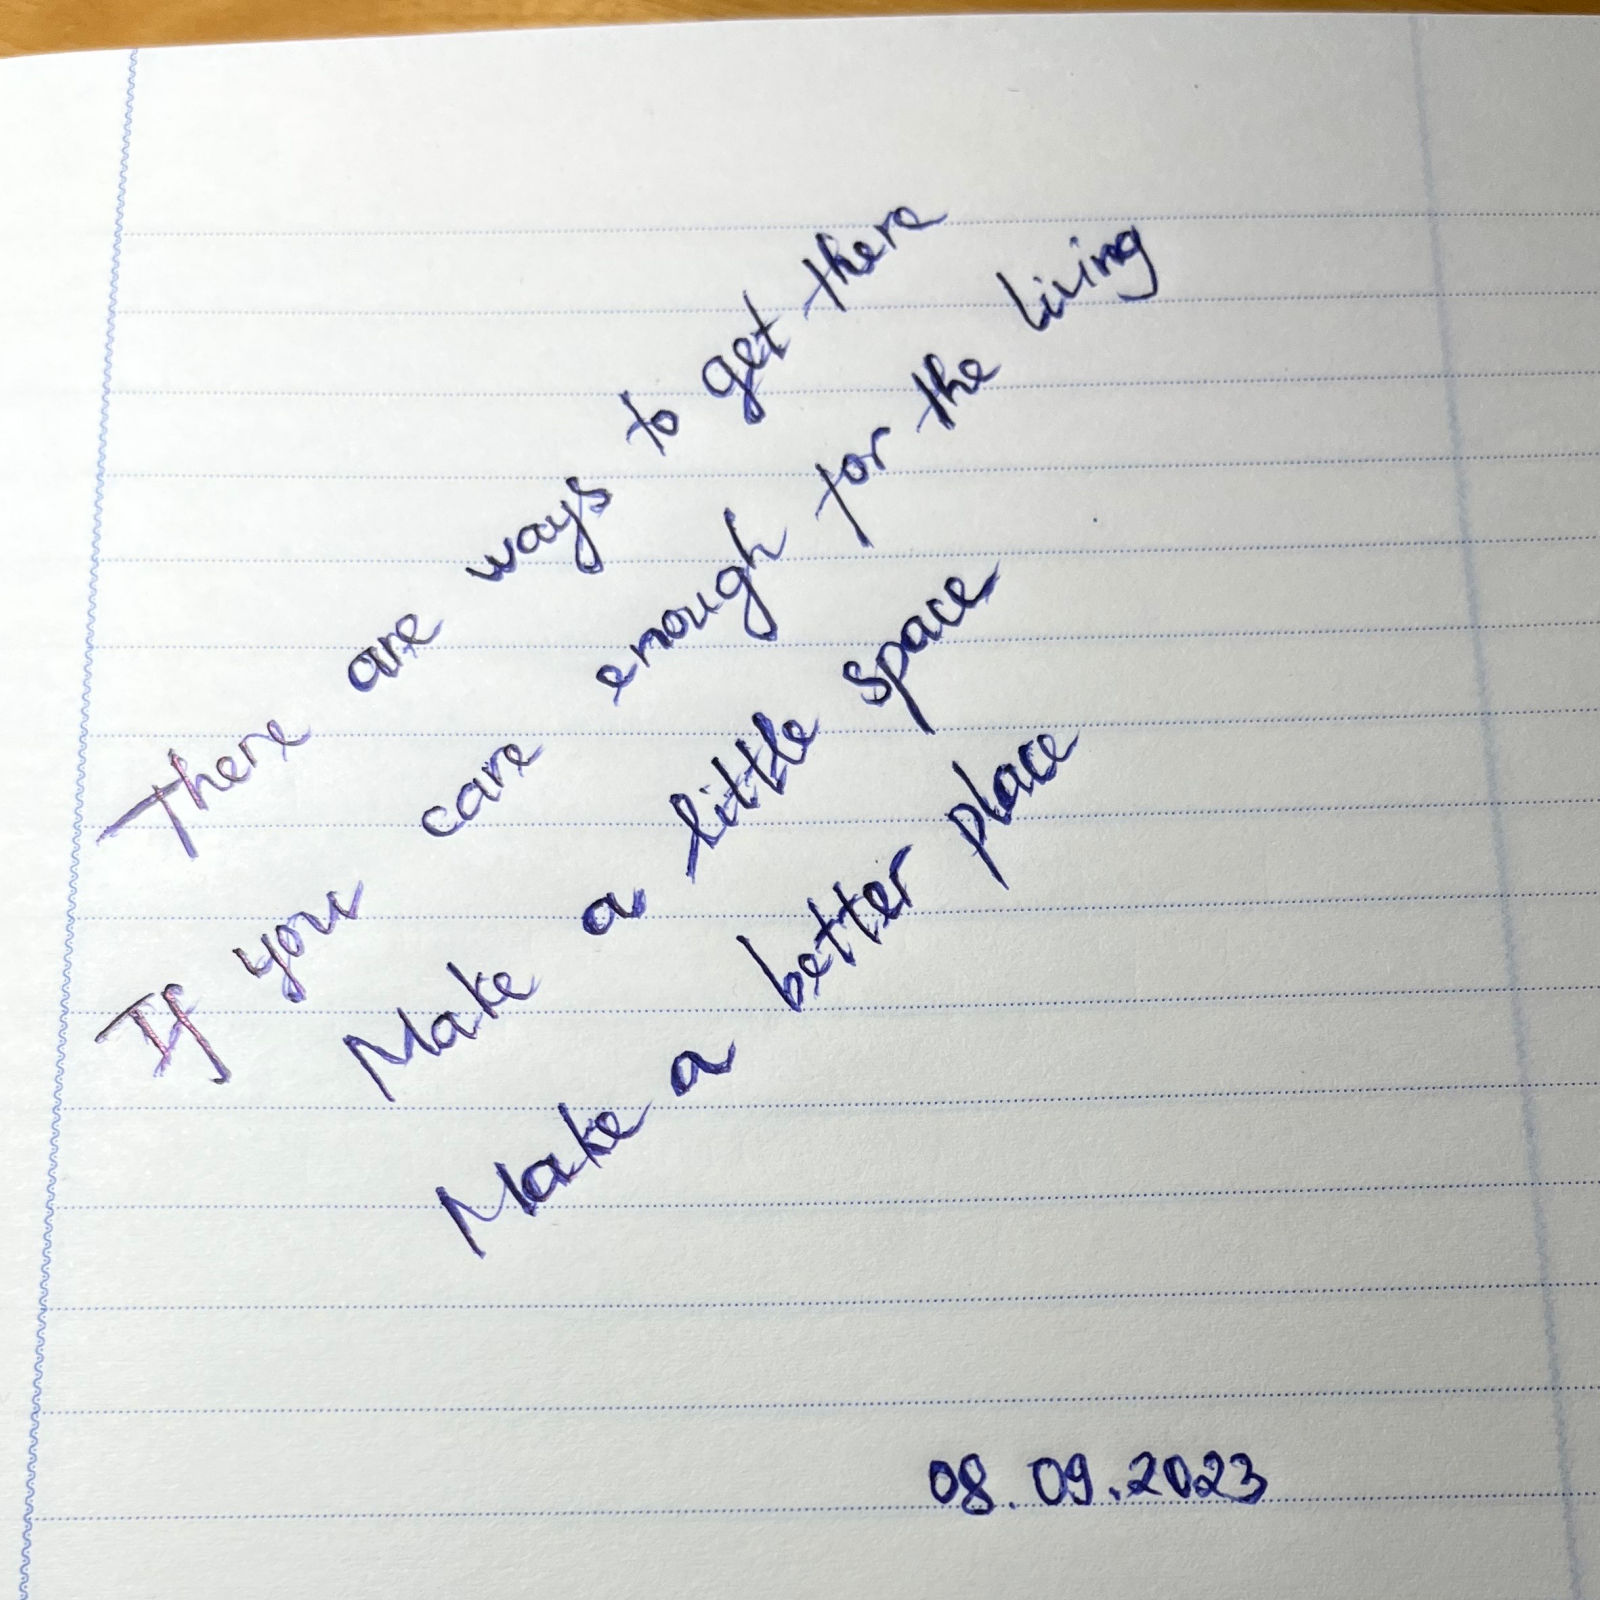 There are ways to get there
If you care enough for the living
Make a little space
Make a better place
08.09.2023